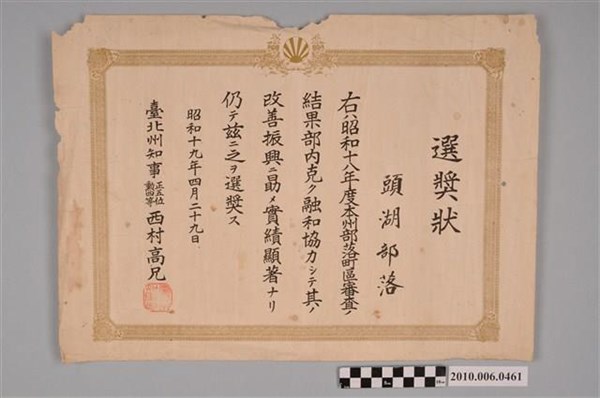 選奬狀
頭湖部落
右ハ昭和十八年度本州部落町區審査ノ
結果部內克ク融和協力シテ其ノ
改善振興ニ勗メ實績顯著ナリ
仍テ茲ニ之ヲ選奬ス
昭和十九年四月二十九日
臺北州知事正五位勳四等西村高兄
2010.006.0461